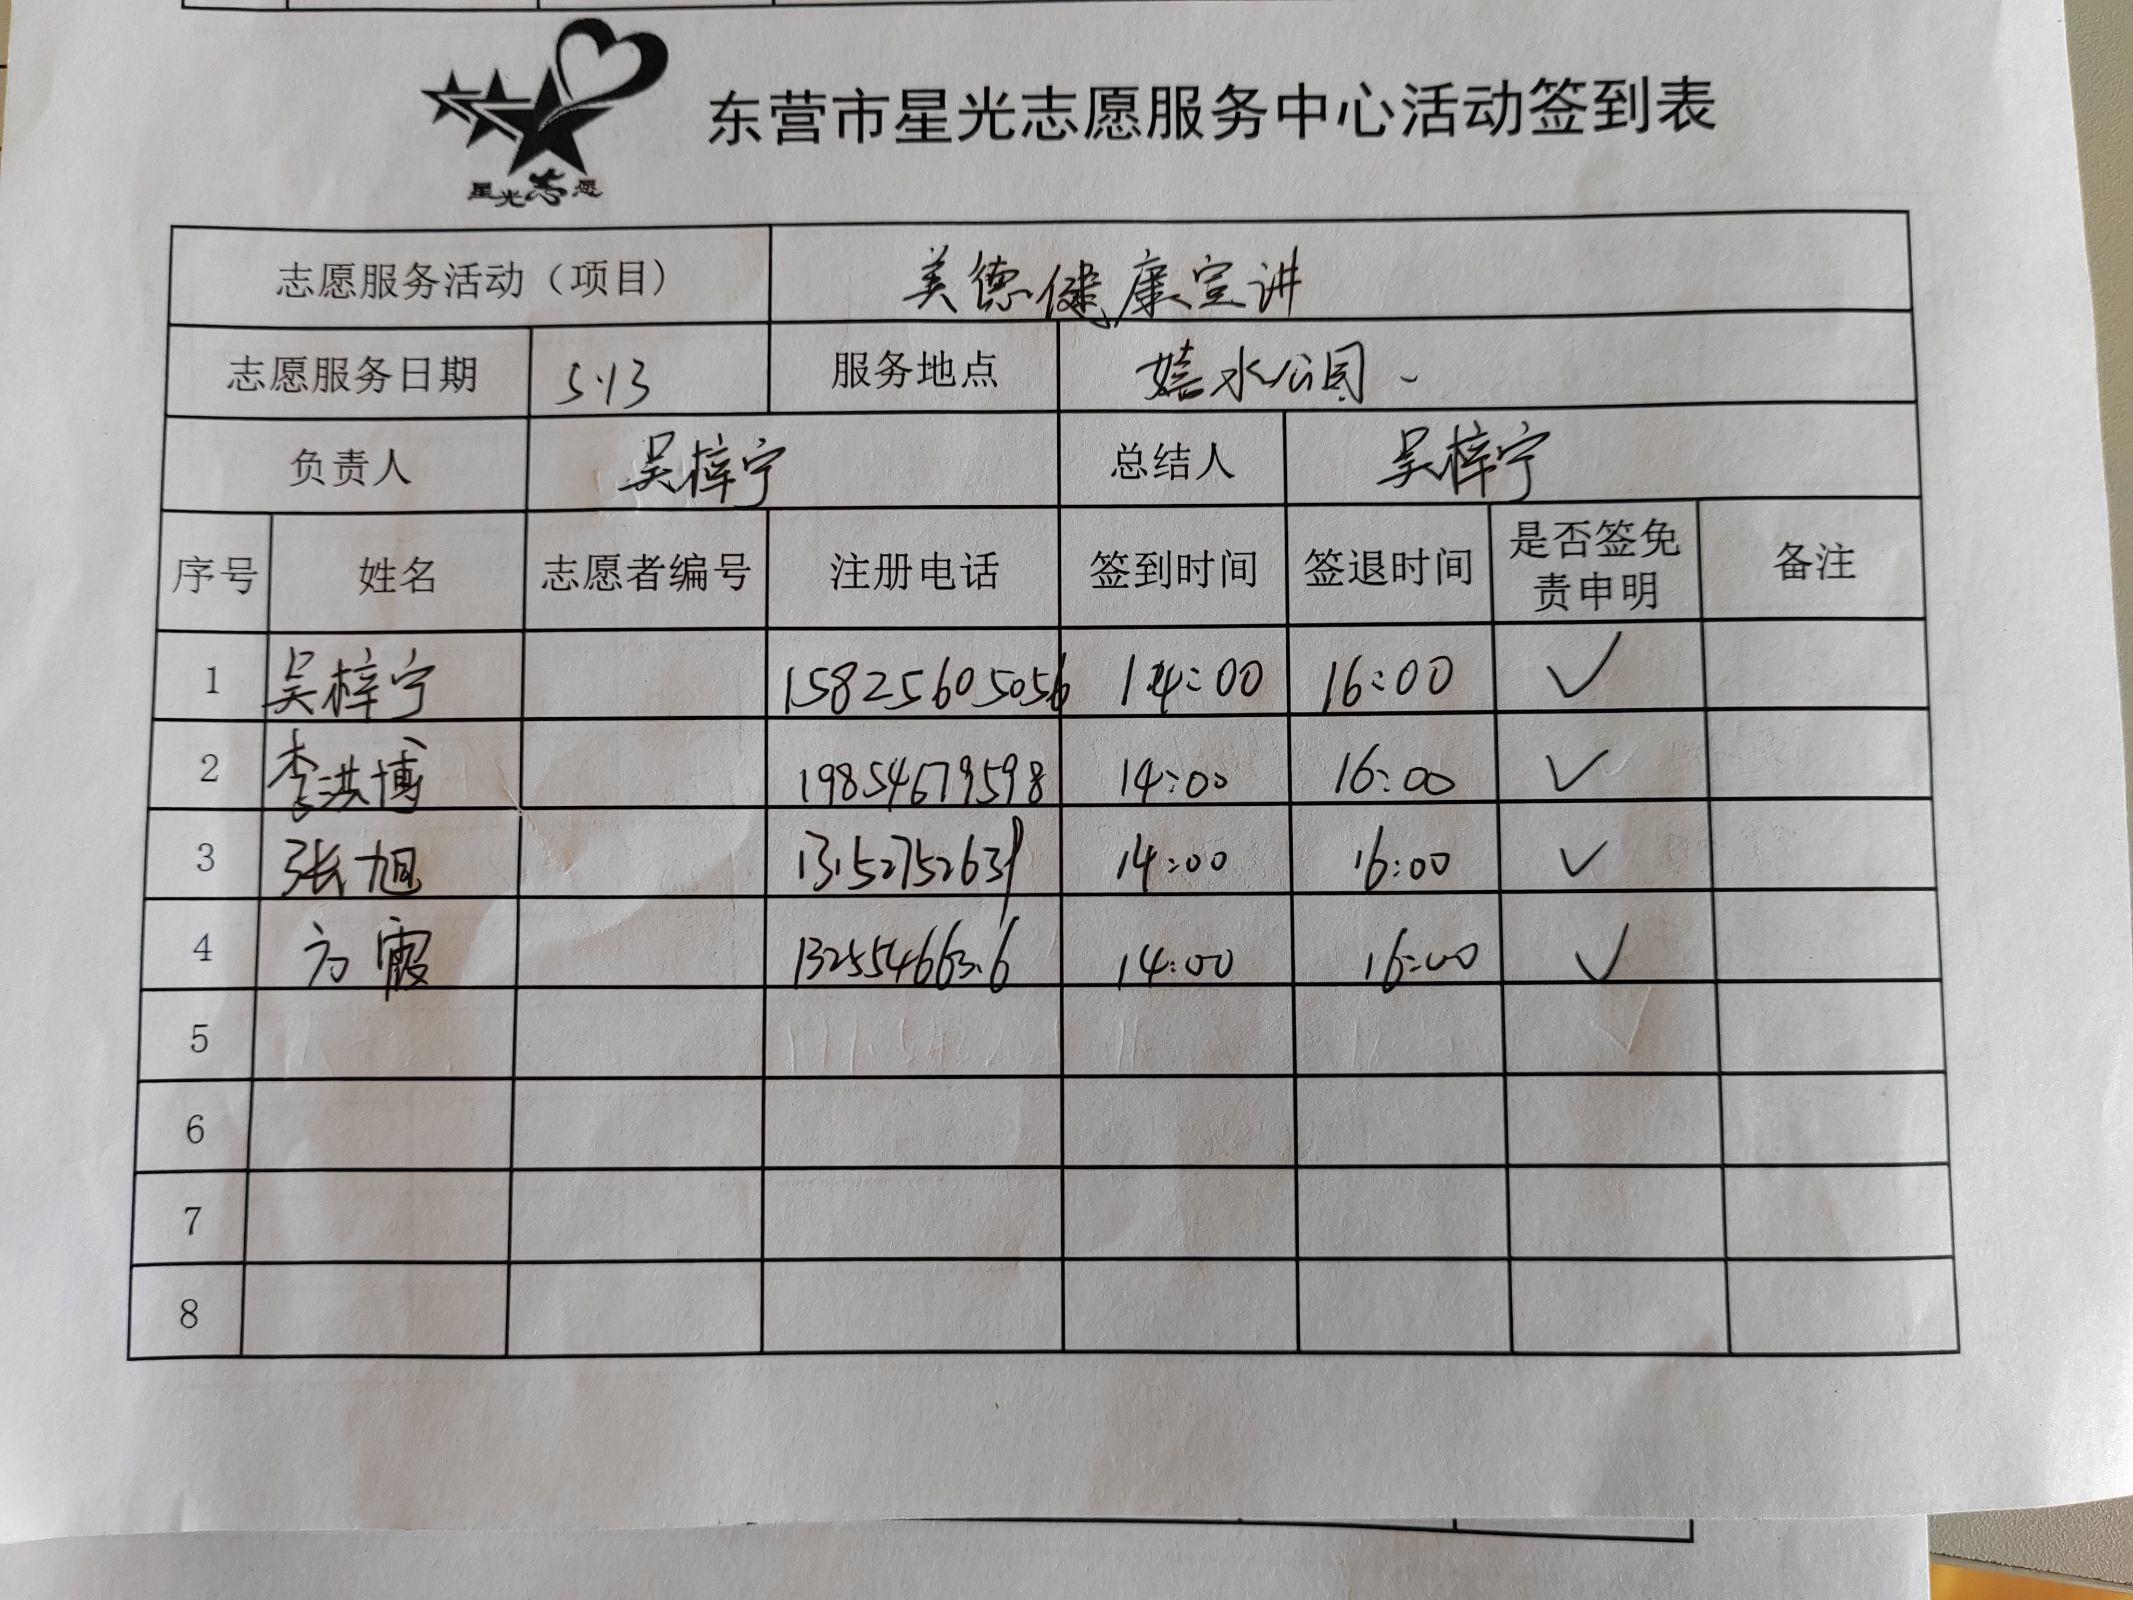 星光志愿
东营市星光志愿服务中心活动签到表
志愿服务活动（项目） 美德健康宣讲
志愿服务日期 5.13 服务地点 嬉水公园
负责人 吴梓宁 总结人 吴梓宁
序号 姓名 志愿者编号 注册电话 签到时间 签退时间 是否签免责申明 备注
1 吴梓宁 15825605056 14:00 16:00 ✓
2 李洪博 19854679598 14:00 16:00 ✓
3 张旭 14:00 16:00 ✓
4 方霞 14:00 16:00 ✓
5
6
7
8